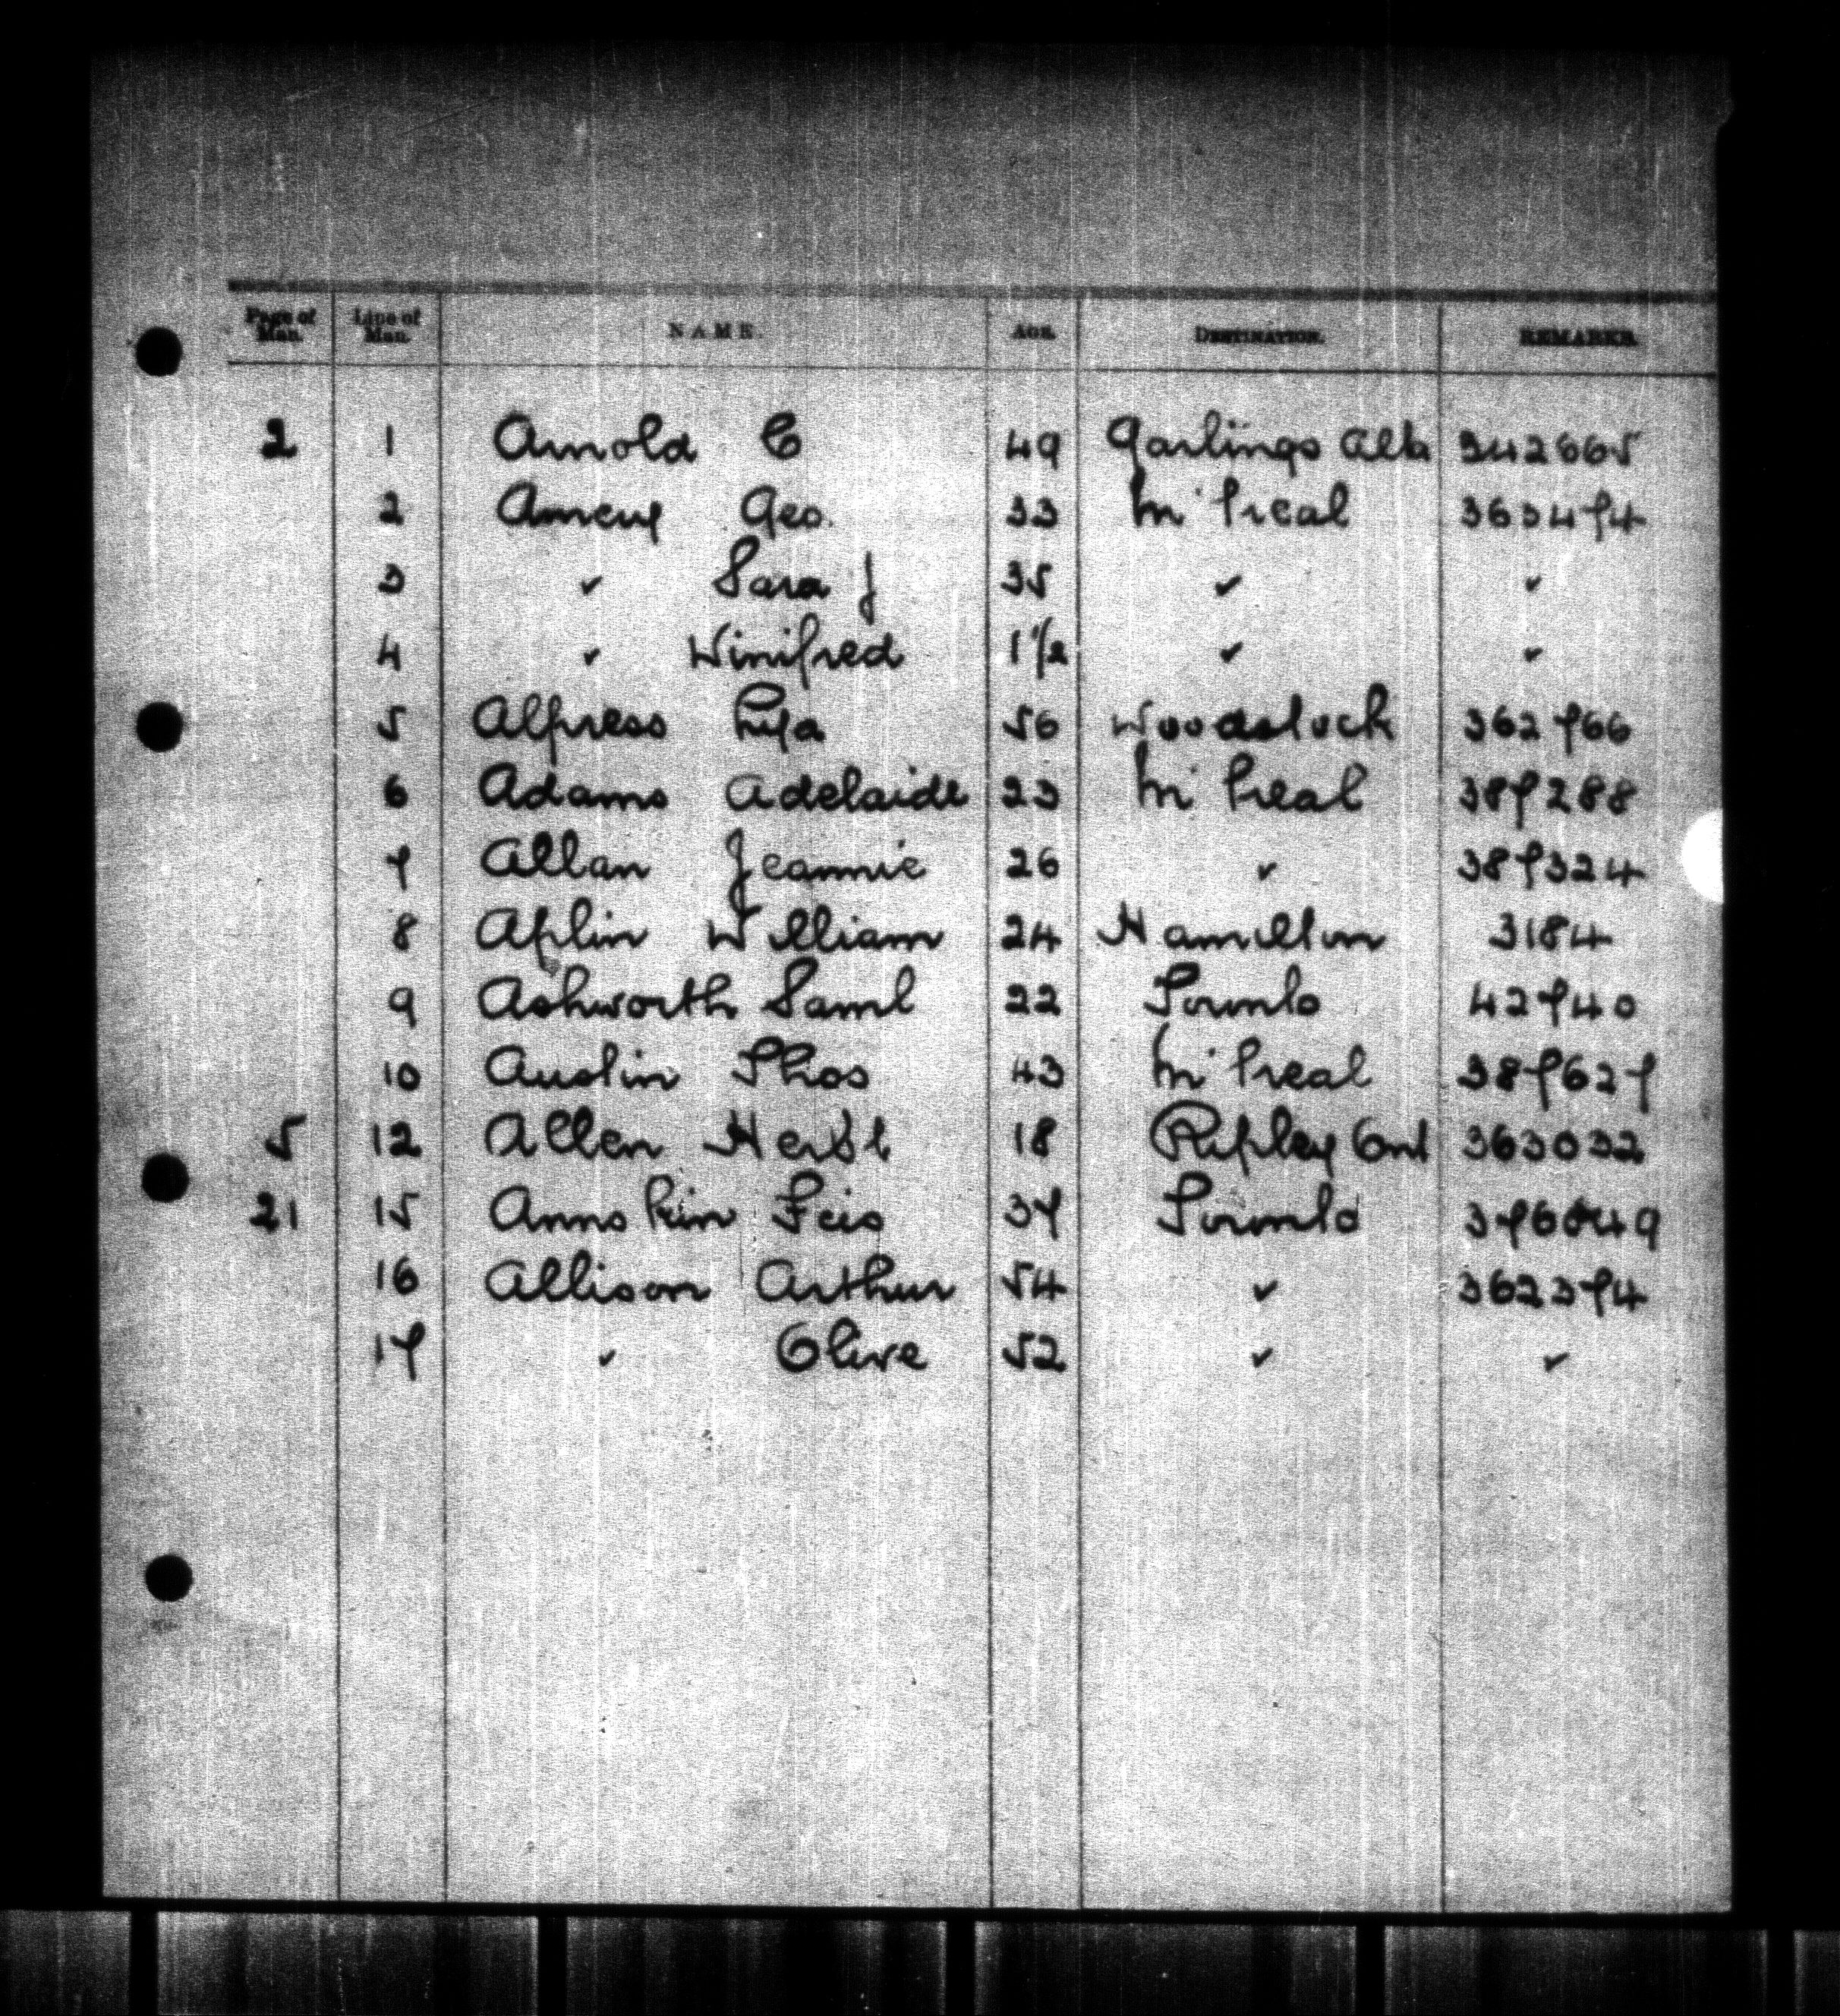 Page of Man. Line of Man. NAME. AGE. DESTINATION. REMARKS.
2 1 Arnold C 49 Garlings Alta 342865
2 Amey Geo. 33 M'treal 363474
3 " Sara J 35 " "
4 " Winifred 1 1/2 " "
5 Allpress 56 Woodstock 362766
6 Adams Adelaide 23 M'treal 387288
7 Allan Jeannie 26 " 387324
8 Aplin William 24 Hamilton 3184
9 Ashworth Saml 22 Toronto 42740
10 Austin Thos 43 M'treal 387627
5 12 Allen Herbt 18 Ripley Ont 363032
21 15 Annskin Fcis 37 Toronto 376049
16 Allison Arthur 54 " 362374
17 " Olive 52 " "